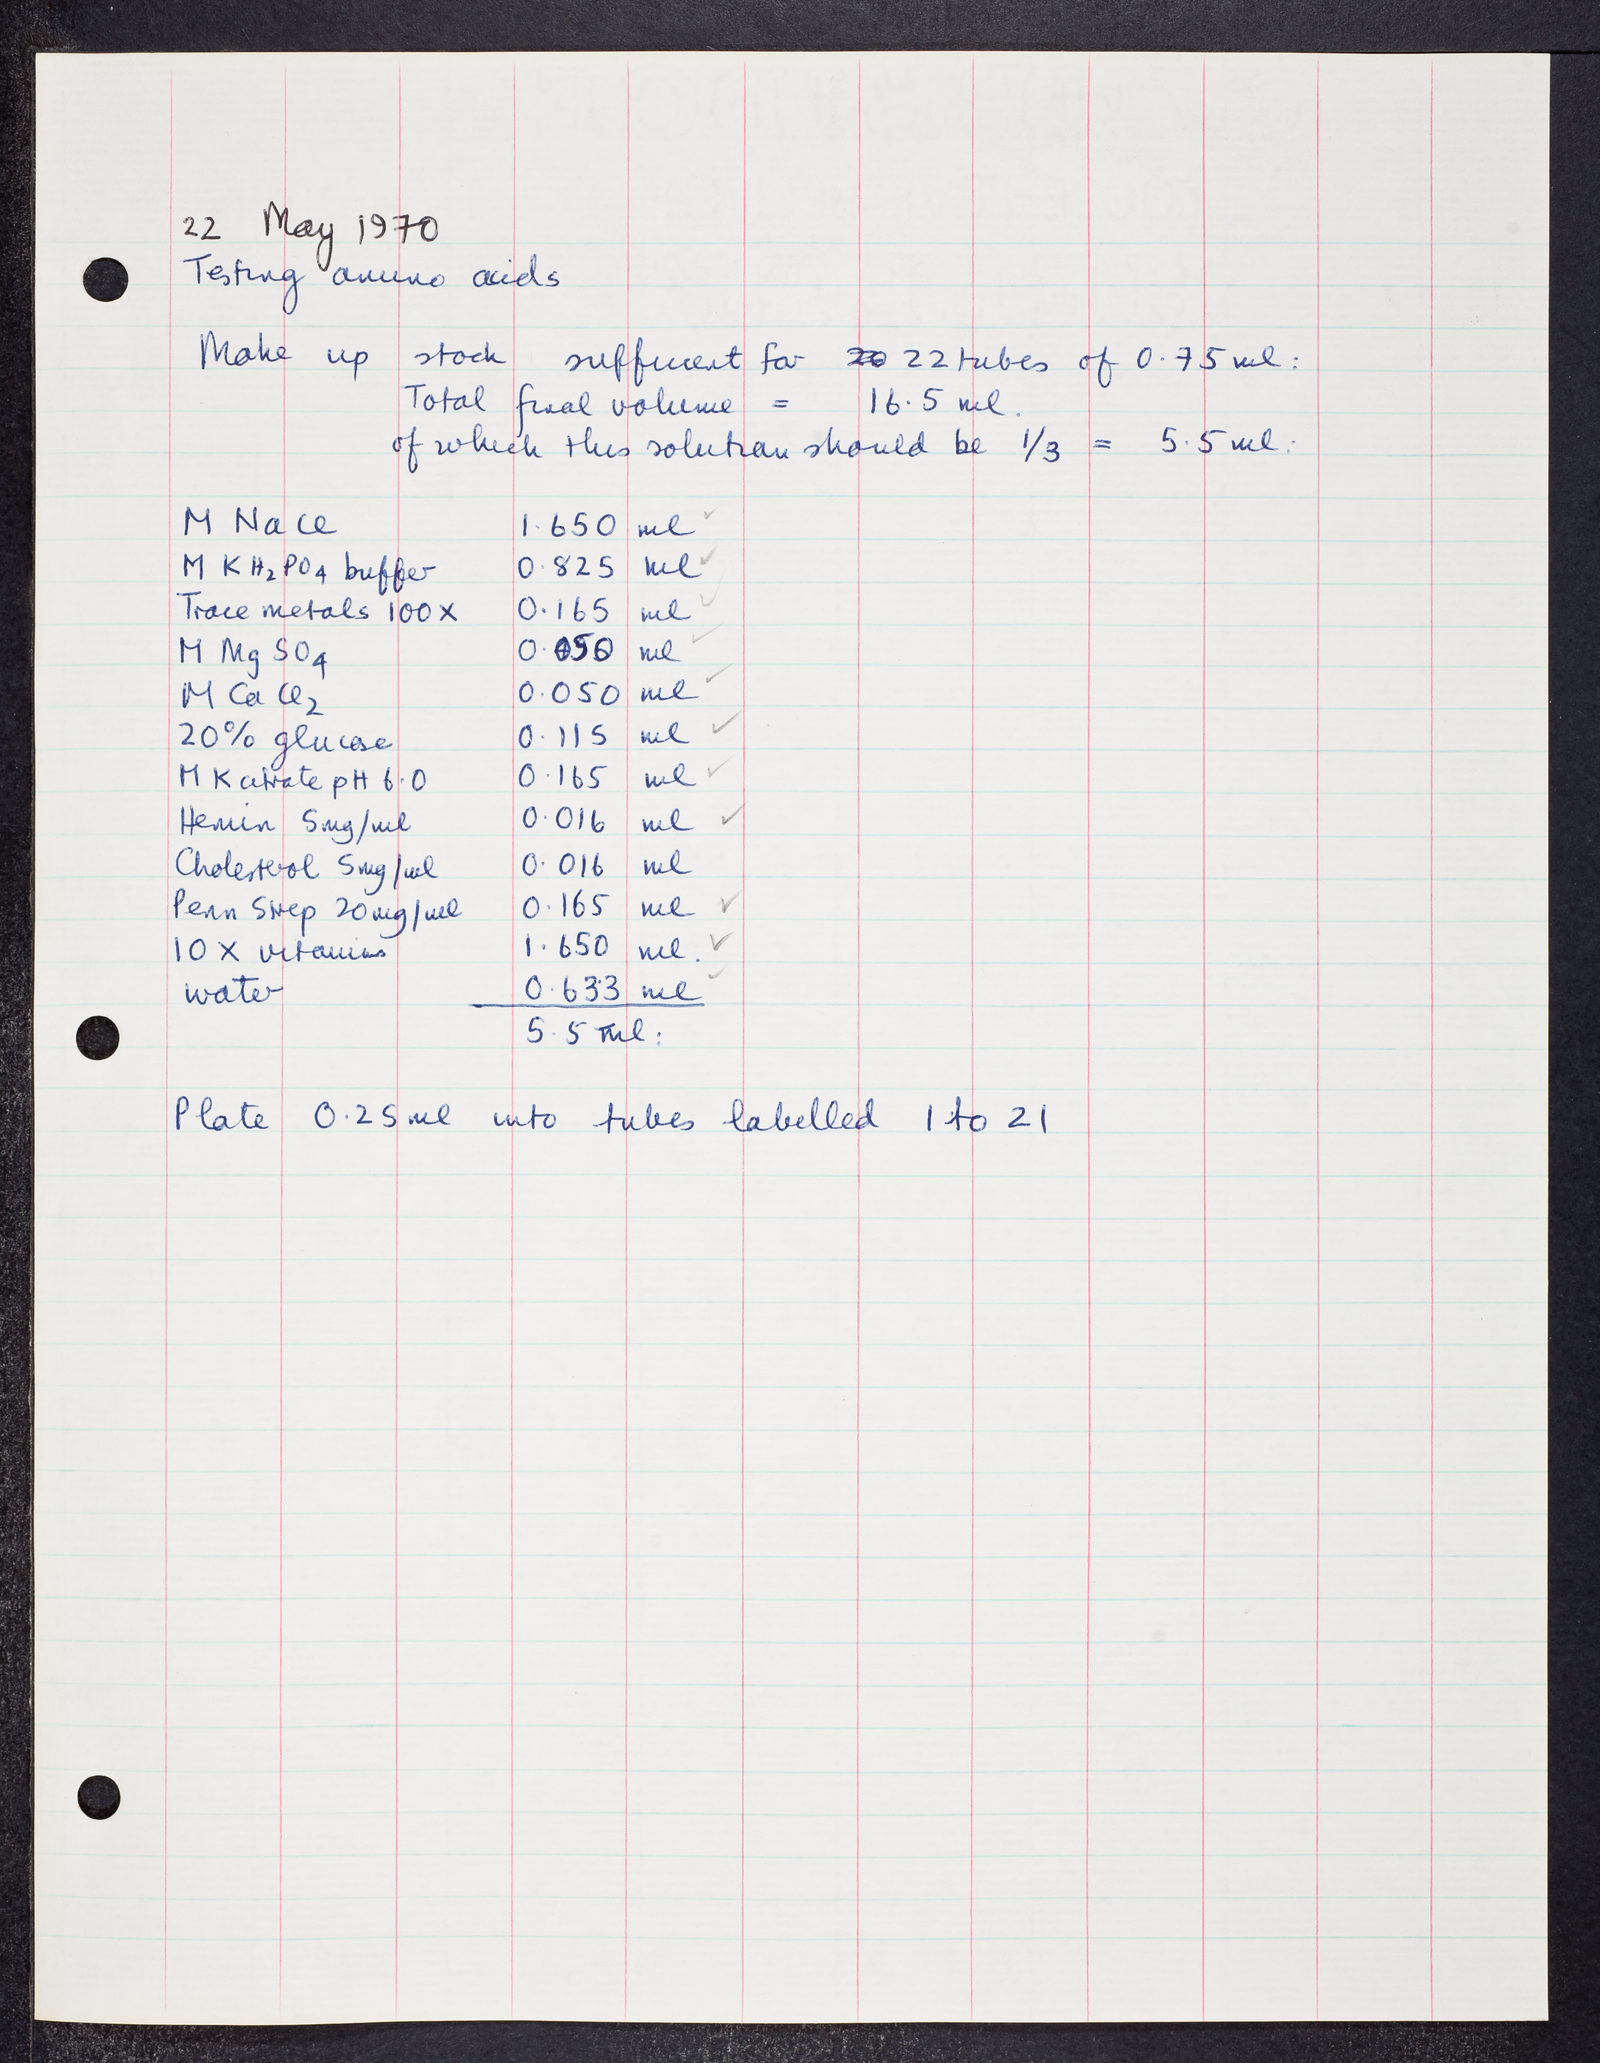 22 May 1970
Testing amino acids
Make up stock sufficient for 20 22 tubes of 0.75 ml.
Total final volume = 16.5 ml.
of which this solution should be 1/3 = 5.5 ml.
M NaCl 1.650 ml ✓
M KH₂PO₄ buffer 0.825 ml ✓
Trace metals 100x 0.165 ml ✓
M MgSO₄ 0.050 ml ✓
M CaCl₂ 0.050 ml ✓
20% glucose 0.115 ml ✓
M K citrate pH 6.0 0.165 ml ✓
Hemin 5mg/ml 0.016 ml ✓
Cholesterol 5mg/ml 0.016 ml
Penn Strep 20mg/ml 0.165 ml ✓
10 X vitamins 1.650 ml. ✓
water 0.633 ml ✓
5.5 ml.
Plate 0.25 ml into tubes labelled 1 to 21